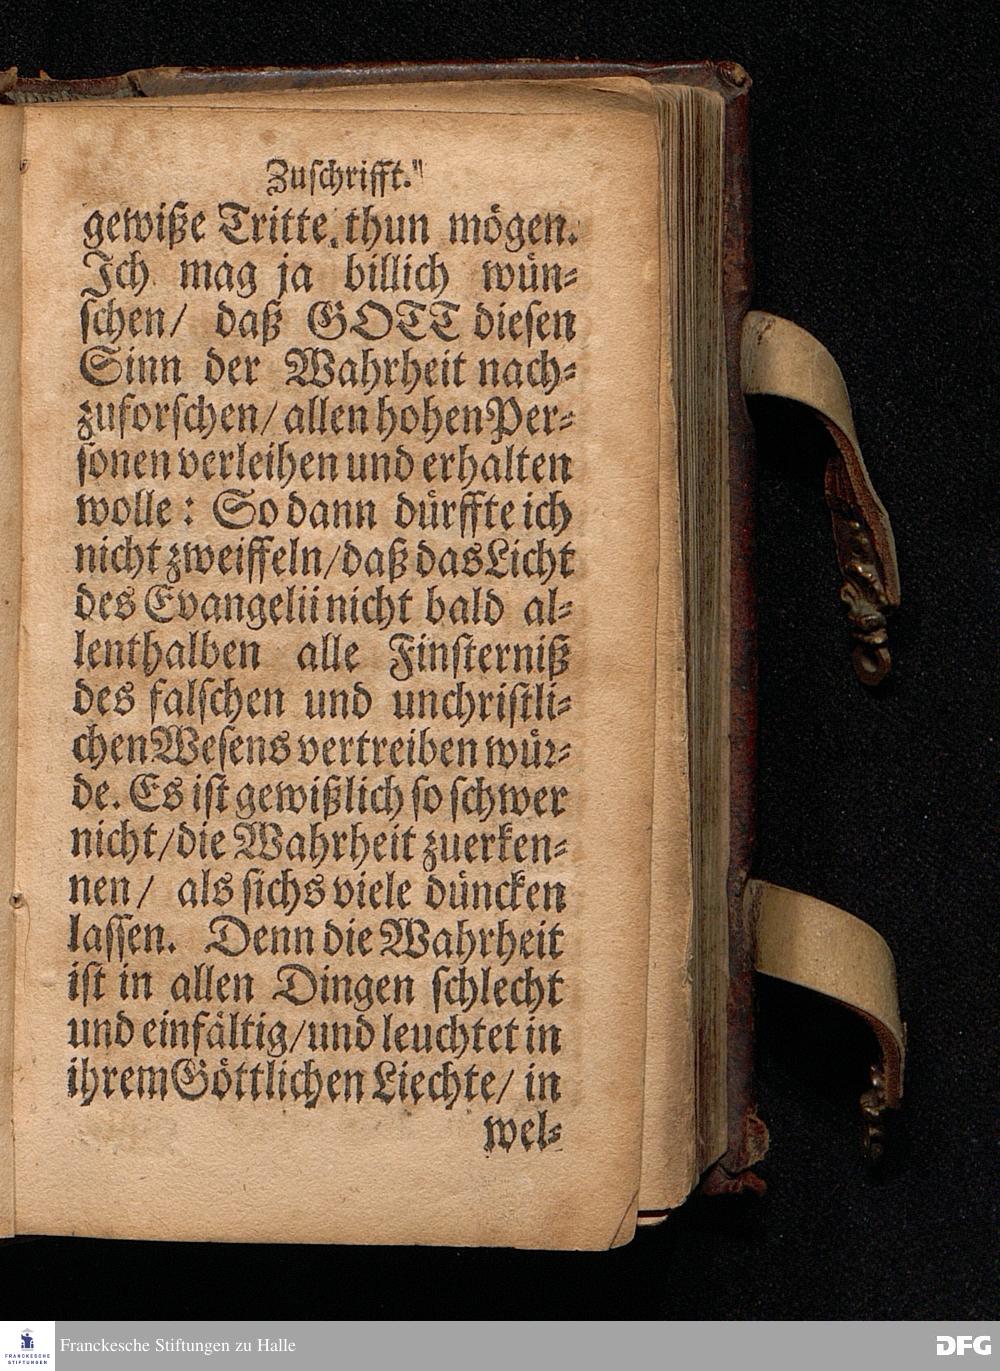 Zuſchrifft.
gewiße Tritte thun mögen.
Ich mag ja billich wün-
ſchen/ daß GOTT dieſen
Sinn der Wahrheit nach-
zuforſchen/ allen hohen Per-
ſonen verleihen und erhalten
wolle: So dann dürffte ich
nicht zweiffeln/ daß das Licht
des Evangelii nicht bald al-
lenthalben alle Finſterniß
des falſchen und unchriſtli-
chen Weſens vertreiben wür-
de. Es iſt gewißlich ſo ſchwer
nicht/ die Wahrheit zuerken-
nen/ als ſichs viele düncken
laſſen. Denn die Wahrheit
iſt in allen Dingen ſchlecht
und einfältig/ und leuchtet in
ihrem Göttlichen Liechte/ in
wel-
FRANCKESCHE
STIFTUNGEN
Franckesche Stiftungen zu Halle
DFG